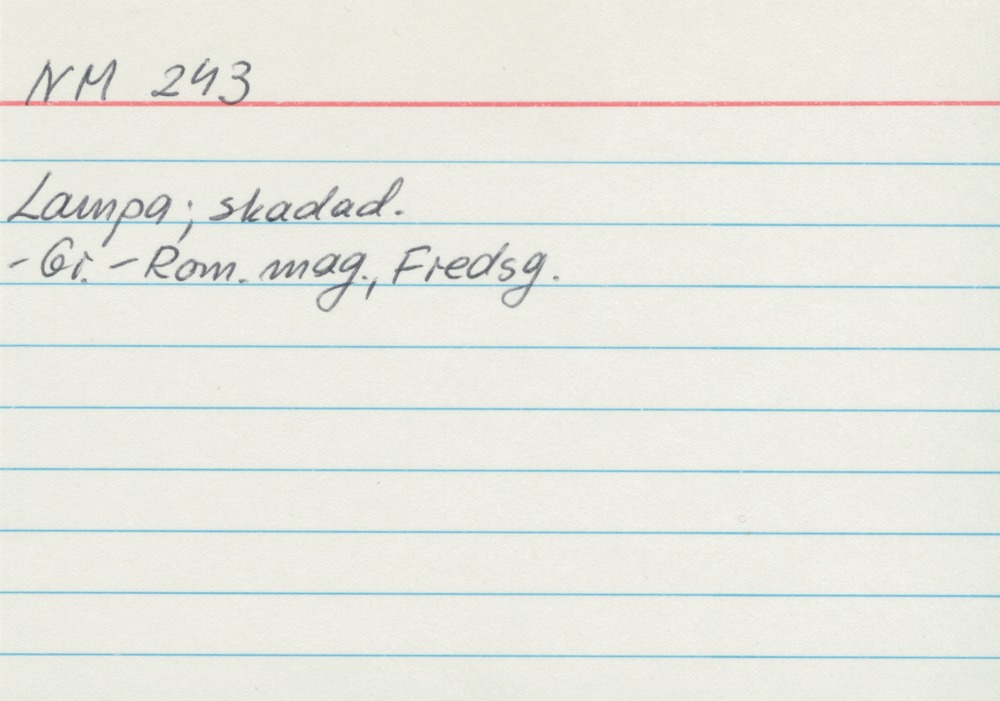 NM 243
Lampa; skadad.
- Gr. - Rom. mag., Fredsg.